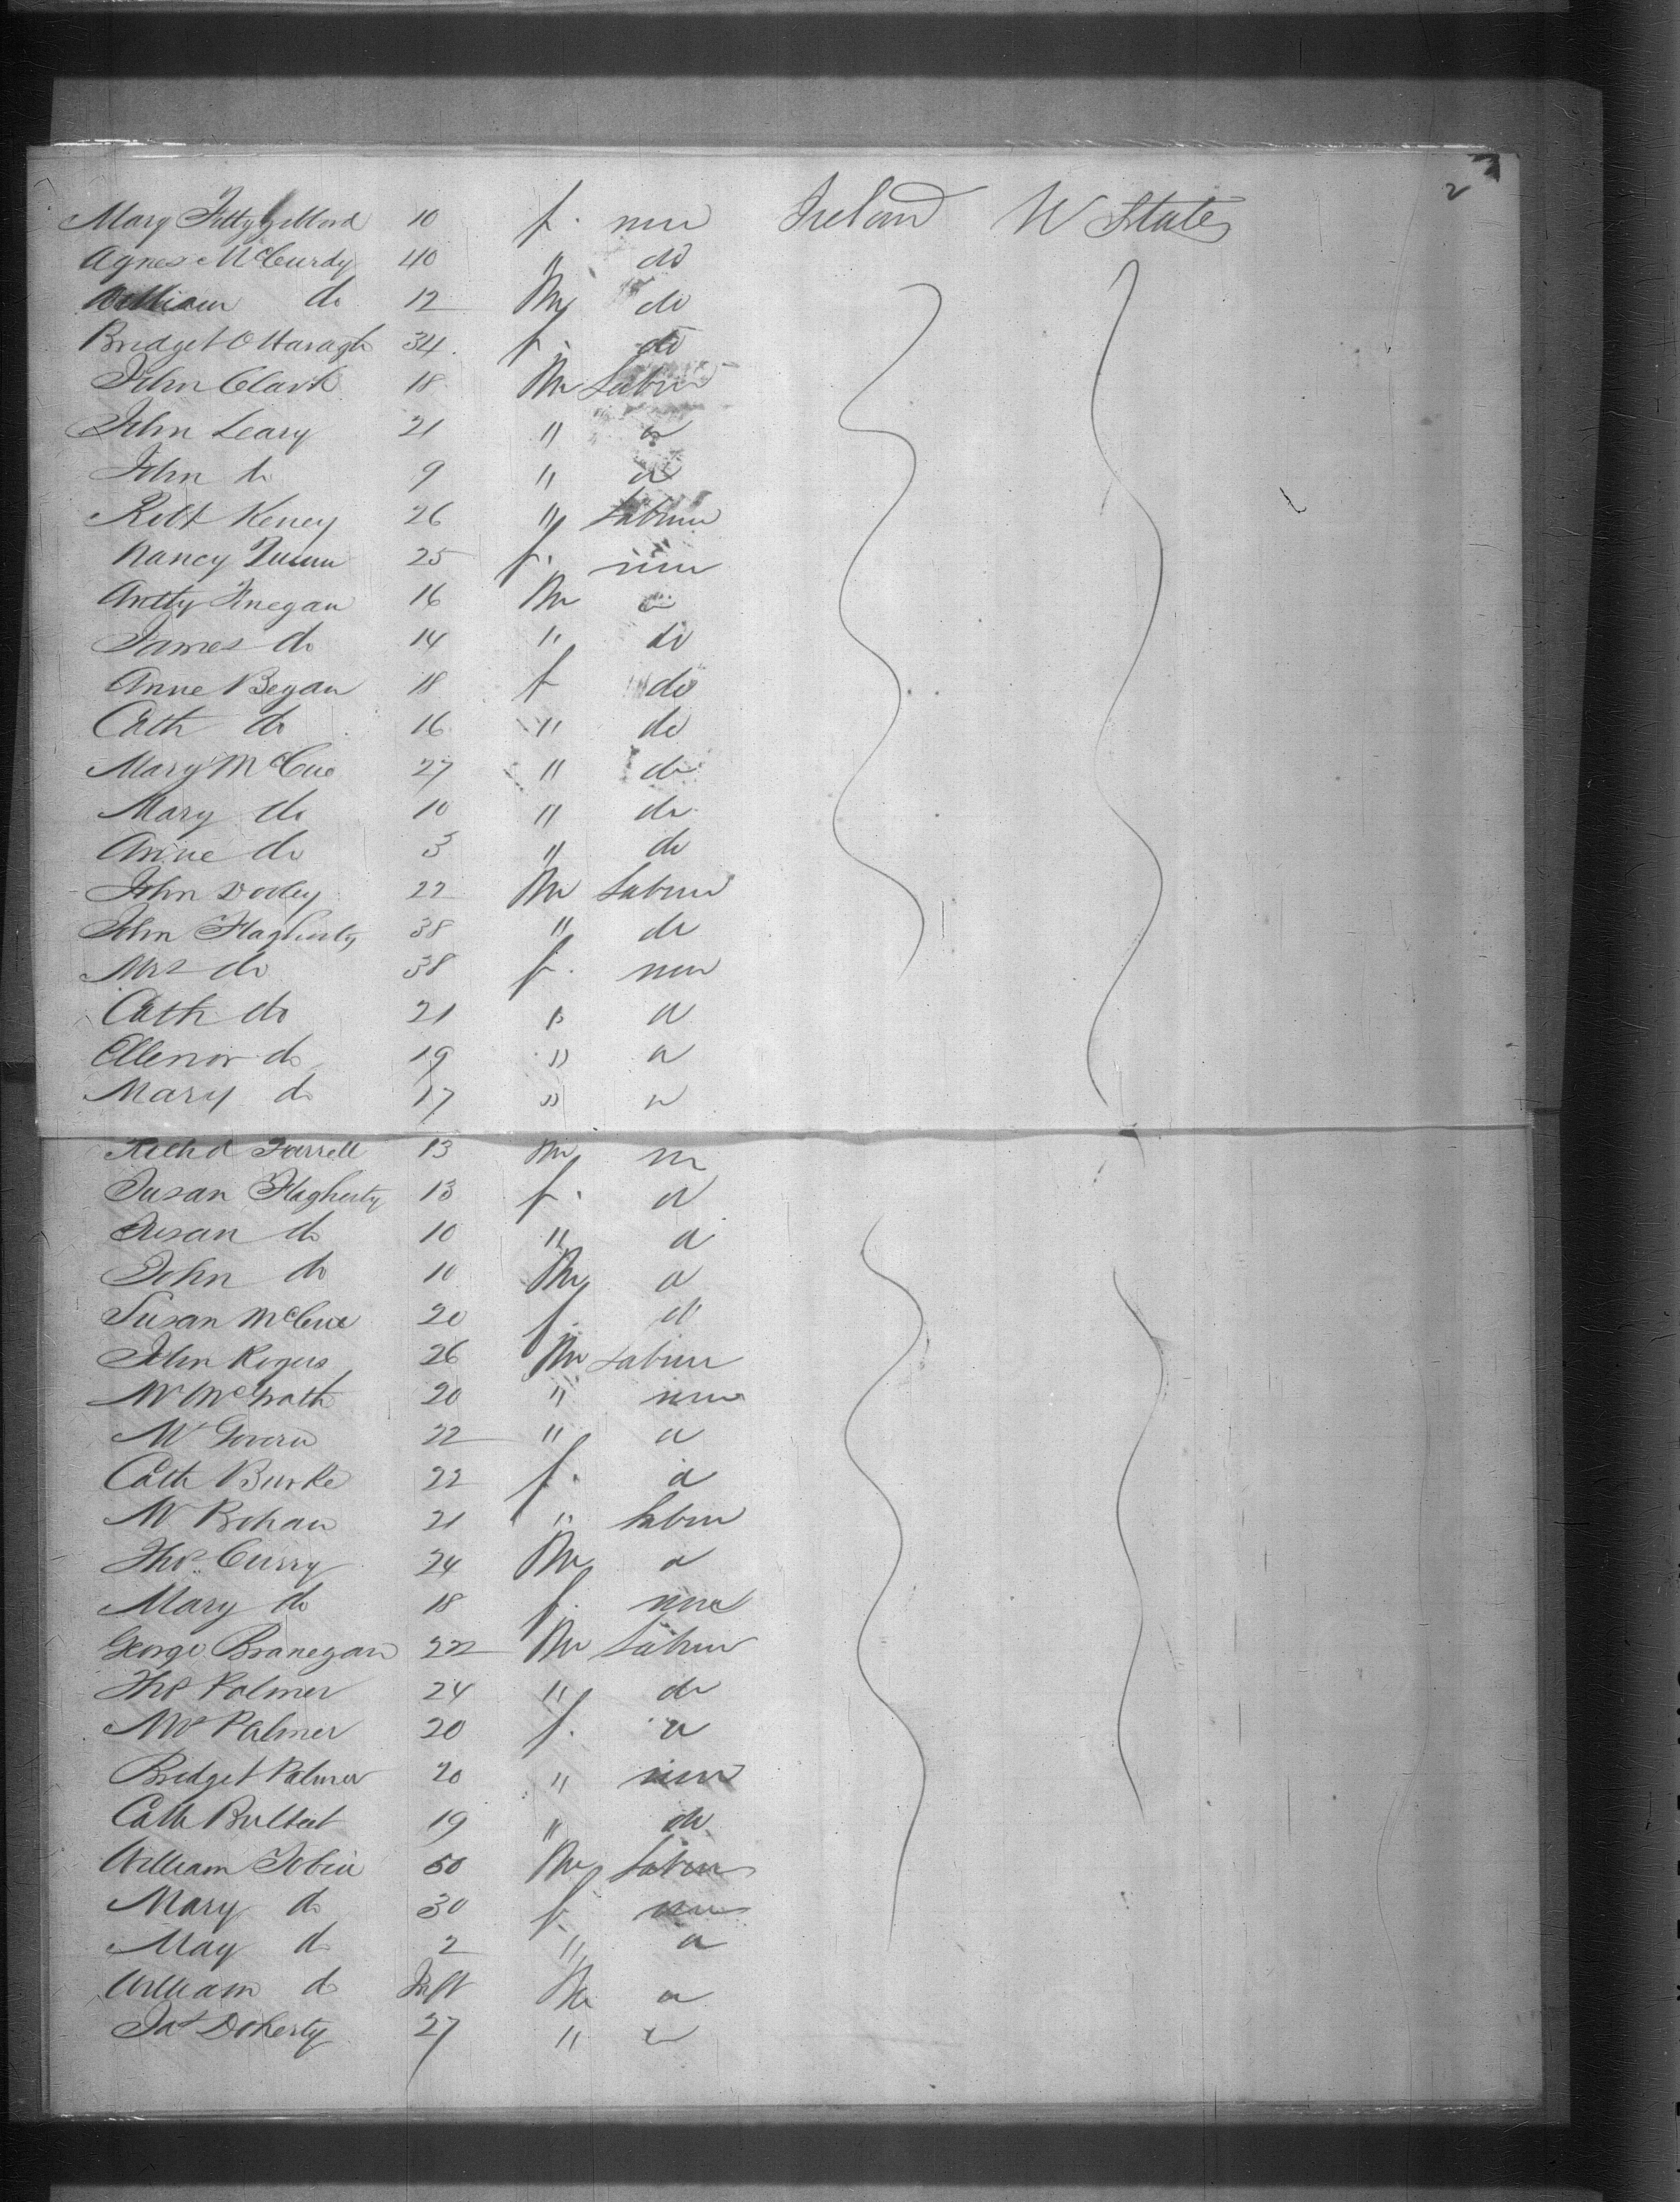 2
Mary 10 f. none Ireland U States
Agnes McCurdy 40 " do
William do 12 M do
Bridget O Haragh 34 f. do
John Clark 18 M Labour
John Leary 21 " do
John do 9 " do
Robt Keney 26 " Labour
Nancy Quinn 25 f. none
Finegan 16 M do
James do 14 " do
Anne Began 18 f do
Cath do 16 " do
Mary McCue 27 " do
Mary do 10 " do
Anne do 3 " do
John Dooley 22 M Labour
John Flagherty 38 " do
Mrs do 38 f. none
Cath do 21 " do
Ellenor do 19 " do
Mary do 17 " do
Richd Farrell 13 M
Susan Flagherty 13 f. do
Susan do 10 " do
John do 10 M do
Susan McCue 20 f. do
John Rogers 26 M Labour
W McGrath 20 " none
M Govern 22 " do
Cath Burke 22 f. do
W Bohan 21 " Labour
Thos Curry 24 M do
Mary do 18 f. none
George Branegan 22 M Labour
Thos Palmer 24 " do
Mrs Palmer 20 f. do
Bridget Palmer 20 " none
Cath 19 " do
William Tobin 50 M Labour
Mary do 30 f. none
May do 2 " do
William do Inft M do
Jas Doherty 27 " do